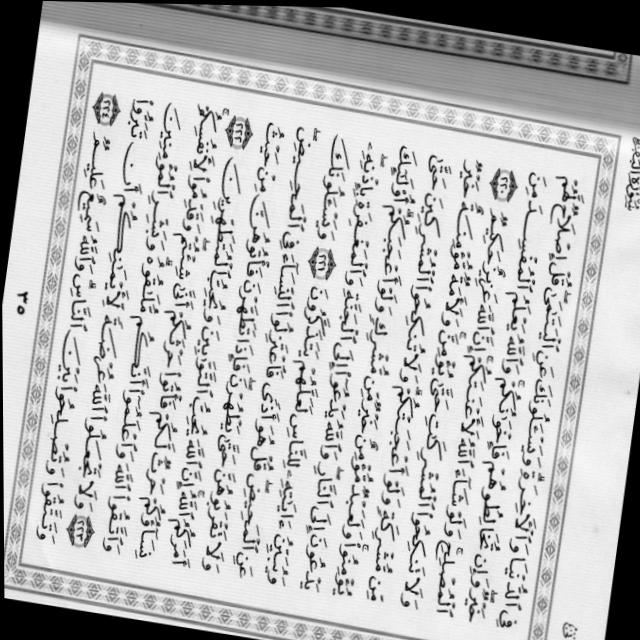 فِي ٱلدُّنْيَا وَٱلْأَخِرَةِ وَيَسْـَٔلُونَكَ عَنِ ٱلْيَتَٰمَىٰ قُلْ إِصْلَاحٌ لَّهُمْ
خَيْرٌ وَإِن تُخَالِطُوهُمْ فَإِخْوَٰنُكُمْ وَٱللَّهُ يَعْلَمُ ٱلْمُفْسِدَ مِنَ
ٱلْمُصْلِحِ وَلَوْ شَآءَ ٱللَّهُ لَأَعْنَتَكُمْ إِنَّ ٱللَّهَ عَزِيزٌ حَكِيمٌ ٢٢٠
وَلَا تَنكِحُوا۟ ٱلْمُشْرِكَٰتِ حَتَّىٰ يُؤْمِنَّ وَلَأَمَةٌ مُّؤْمِنَةٌ خَيْرٌ
مِّن مُّشْرِكَةٍ وَلَوْ أَعْجَبَتْكُمْ وَلَا تُنكِحُوا۟ ٱلْمُشْرِكِينَ حَتَّىٰ
يُؤْمِنُوا۟ وَلَعَبْدٌ مُّؤْمِنٌ خَيْرٌ مِّن مُّشْرِكٍ وَلَوْ أَعْجَبَكُمْ أُو۟لَٰٓئِكَ
يَدْعُونَ إِلَى ٱلنَّارِ وَٱللَّهُ يَدْعُوٓا۟ إِلَى ٱلْجَنَّةِ وَٱلْمَغْفِرَةِ بِإِذْنِهِۦ
وَيُبَيِّنُ ءَايَٰتِهِۦ لِلنَّاسِ لَعَلَّهُمْ يَتَذَكَّرُونَ ٢٢١ وَيَسْـَٔلُونَكَ عَنِ
ٱلْمَحِيضِ قُلْ هُوَ أَذًى فَٱعْتَزِلُوا۟ ٱلنِّسَآءَ فِي ٱلْمَحِيضِ
وَلَا تَقْرَبُوهُنَّ حَتَّىٰ يَطْهُرْنَ فَإِذَا تَطَهَّرْنَ فَأْتُوهُنَّ مِنْ
حَيْثُ أَمَرَكُمُ ٱللَّهُ إِنَّ ٱللَّهَ يُحِبُّ ٱلتَّوَّٰبِينَ وَيُحِبُّ ٱلْمُتَطَهِّرِينَ ٢٢٢
نِسَآؤُكُمْ حَرْثٌ لَّكُمْ فَأْتُوا۟ حَرْثَكُمْ أَنَّىٰ شِئْتُمْ وَقَدِّمُوا۟
لِأَنفُسِكُمْ وَٱتَّقُوا۟ ٱللَّهَ وَٱعْلَمُوٓا۟ أَنَّكُم مُّلَٰقُوهُ وَبَشِّرِ
ٱلْمُؤْمِنِينَ ٢٢٣ وَلَا تَجْعَلُوا۟ ٱللَّهَ عُرْضَةً لِّأَيْمَٰنِكُمْ أَن
تَبَرُّوا۟ وَتَتَّقُوا۟ وَتُصْلِحُوا۟ بَيْنَ ٱلنَّاسِ وَٱللَّهُ سَمِيعٌ عَلِيمٌ ٢٢٤
٣٥